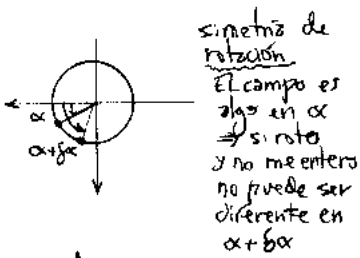 simetría de
rotación
El campo es
algo en α
⇒ si roto
y no me entero
no puede ser
diferente en
α + δα
α
α+δα